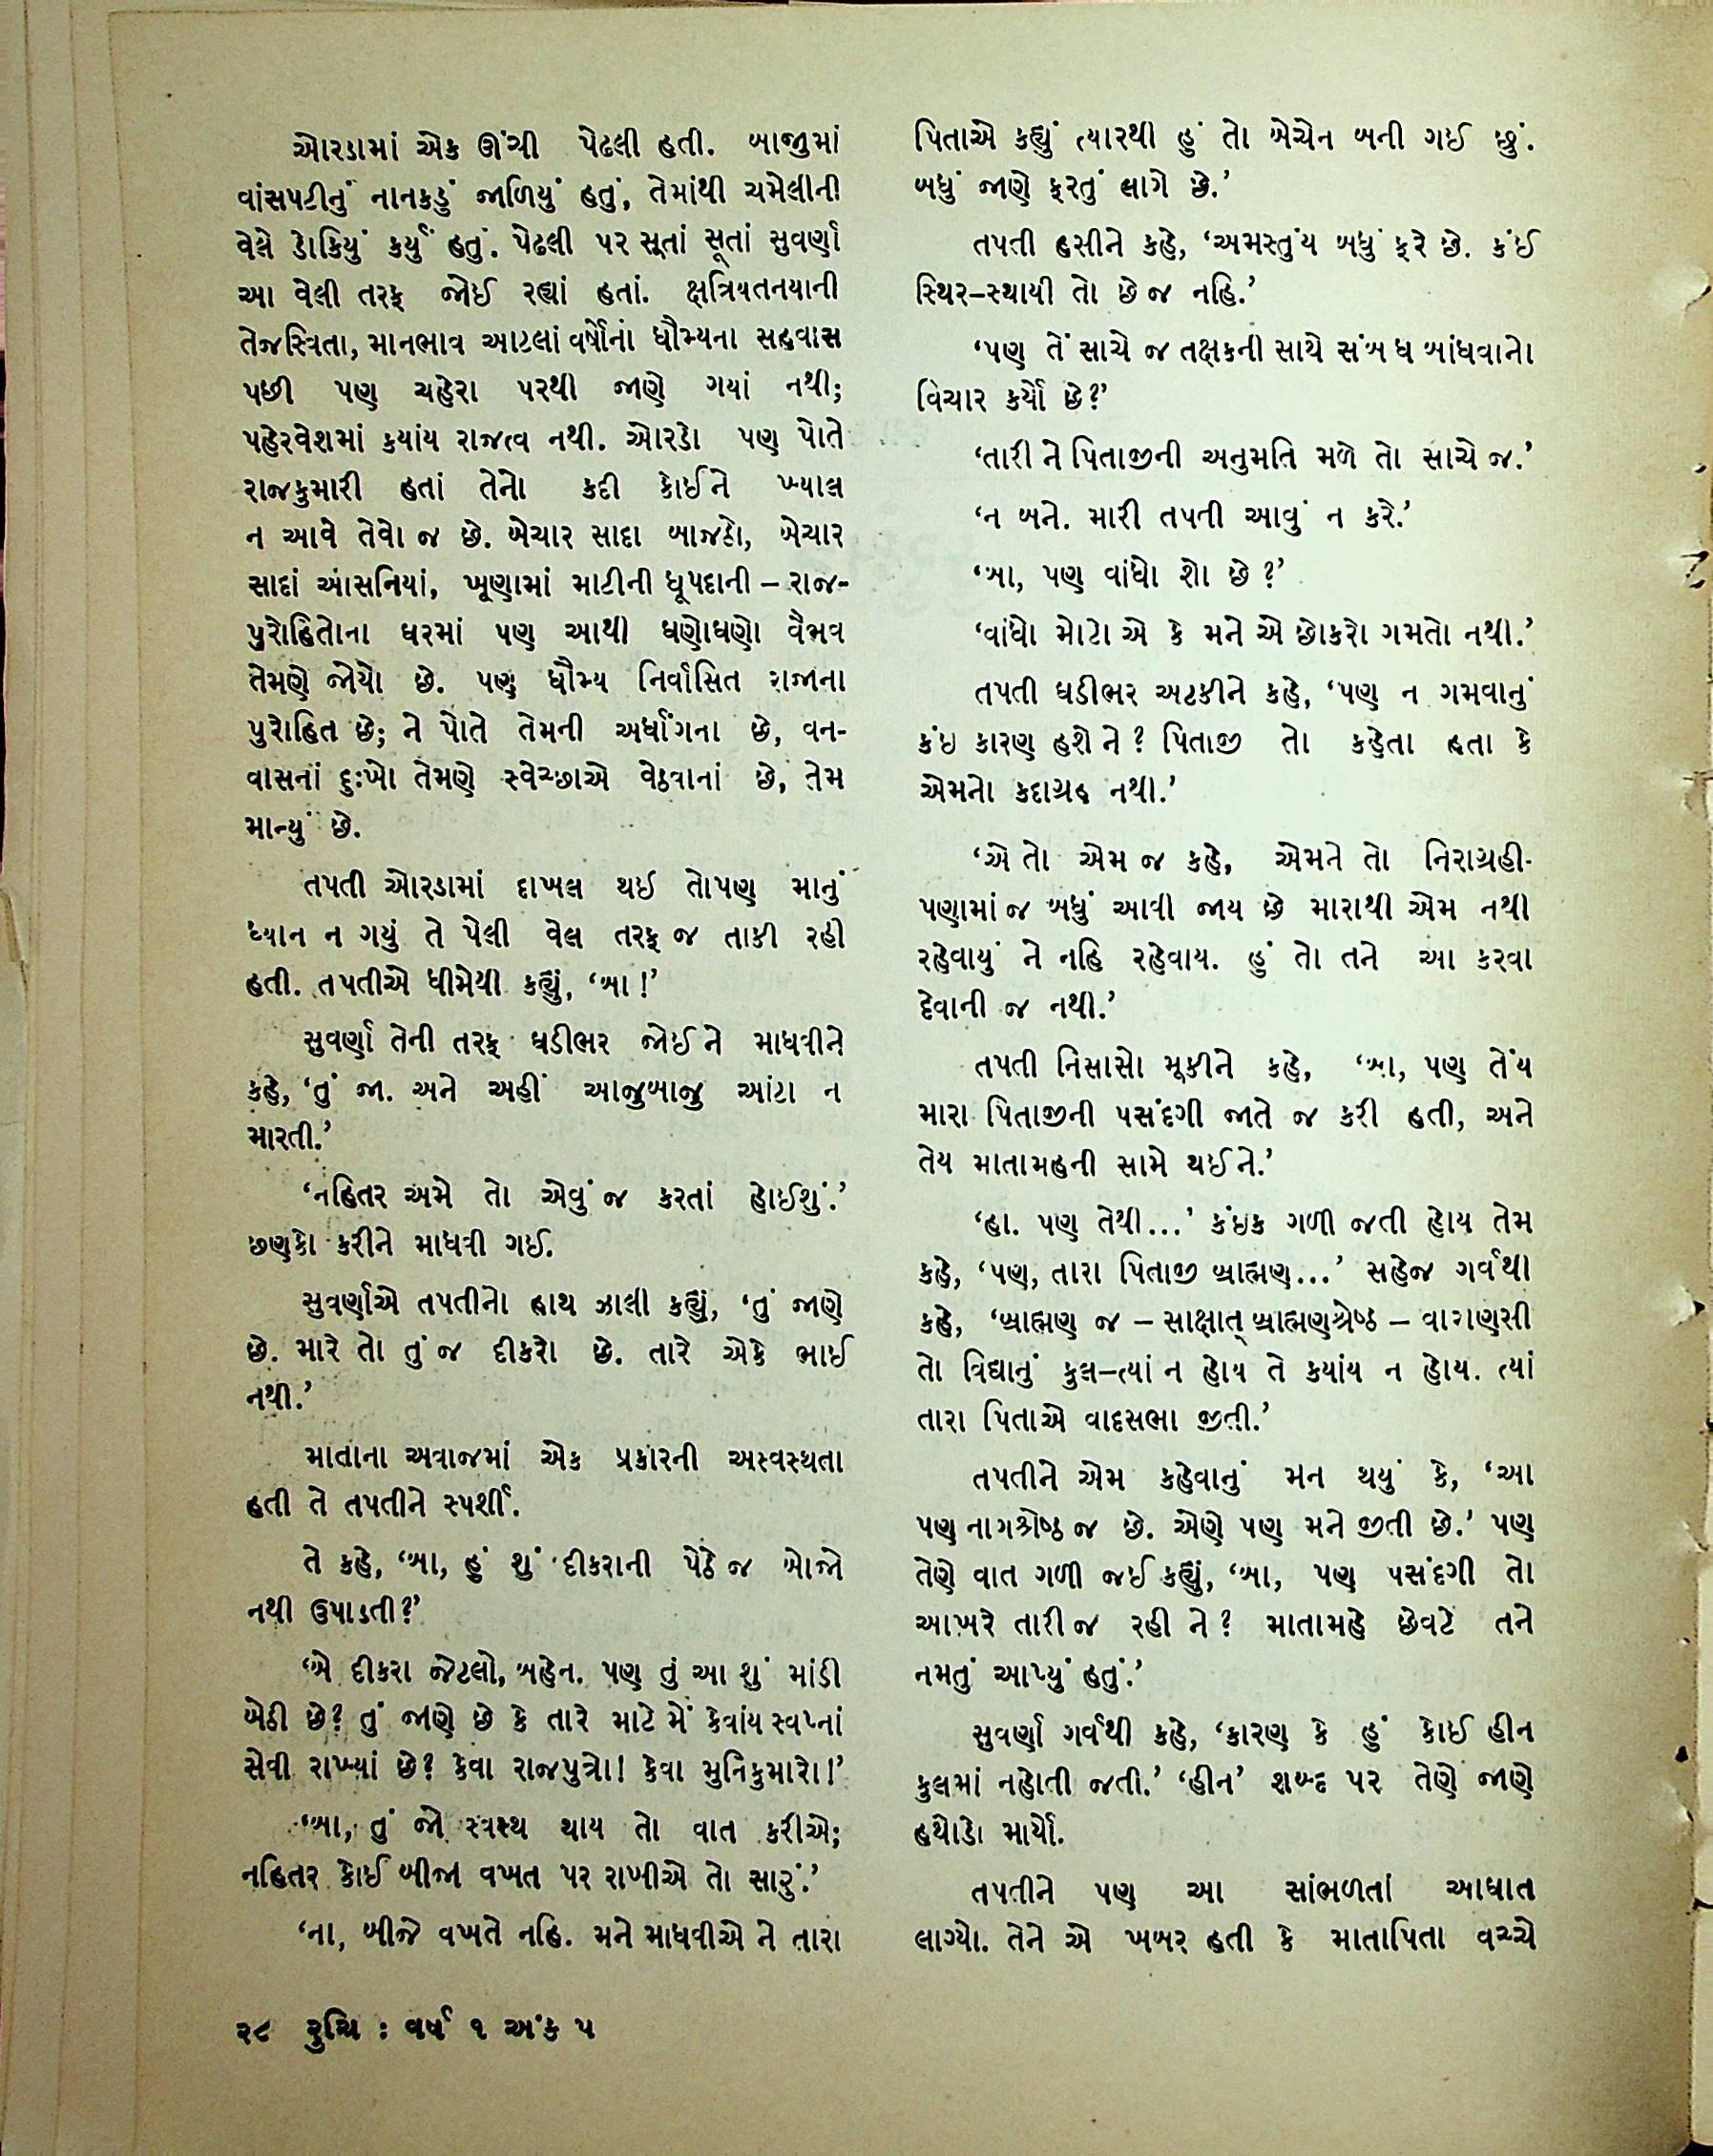 ઓરડામાં એક ઊંચી પેઢલી હતી. બાજુમાં
વાંસપટીનું નાનકડું જાળિયું હતું, તેમાંથી ચમેલીની
વેલે ડોકિયું કર્યું હતું. પેઢલી પર સૂતાં સૂતાં સુવર્ણા
આ વેલી તરફ જોઈ રહ્યાં હતાં. ક્ષત્રિયતનયાની
તેજસ્વિતા, માનભાવ આટલાં વર્ષોનાં ધૌમ્યના સહવાસ
પછી પણ ચહેરા પરથી જાણે ગયાં નથી;
પહેરવેશમાં કયાંય રાજત્વ નથી. ઓરડો પણ પોતે
રાજકુમારી હતાં તેનો કદી કોઈને ખ્યાલ
ન આવે તેવો જ છે. બેચાર સાદા બાજઠો, બેચાર
સાદાં આસનિયાં, ખૂણામાં માટીની ધૂપદાની – રાજ-
પુરોહિતોના ઘરમાં પણ આથી ઘણોઘણો વૈભવ
તેમણે જોયો છે. પણ ધૌમ્ય નિર્વાસિત રાજાના
પુરોહિત છે; ને પોતે તેમની અર્ધાંગના છે, વન-
વાસનાં દુઃખો તેમણે સ્વેચ્છાએ વેઠવાનાં છે, તેમ
માન્યું છે.
તપતી ઓરડામાં દાખલ થઈ તોપણ માનું
ધ્યાન ન ગયું તે પેલી વેલ તરફ જ તાકી રહી
હતી. તપતીએ ધીમેથી કહ્યું, ‘બા!’
સુવર્ણા તેની તરફ ઘડીભર જોઈને માધવીને
કહે, ‘તું જા. અને અહીં આજુબાજુ આંટા ન
મારતી.’
‘નહિતર અમે તો એવું જ કરતાં હોઈશું.’
છણકો કરીને માધવી ગઈ.
સુવર્ણાએ તપતીનો હાથ ઝાલી કહ્યું, ‘તું જાણે
છે. મારે તો તું જ દીકરો છે. તારે એકે ભાઈ
નથી.’
માતાના અવાજમાં એક પ્રકારની અસ્વસ્થતા
હતી તે તપતીને સ્પર્શી.
તે કહે, ‘બા, હું શું દીકરાની પેઠે જ બોજો
નથી ઉપાડતી?’
‘એ દીકરા જેટલો, બહેન. પણ તું આ શું માંડી
બેઠી છે? તું જાણે છે કે તારે માટે મેં કેવાંય સ્વપ્નાં
સેવી રાખ્યાં છે? કેવા રાજપુત્રો! કેવા મુનિકુમારો!’
‘બા, તું જો સ્વસ્થ થાય તો વાત કરીએ;
નહિતર કોઈ બીજા વખત પર રાખીએ તો સારું.’
‘ના, બીજે વખતે નહિ. મને માધવીએ ને તારા
પિતાએ કહ્યું ત્યારથી હું તો બેચેન બની ગઈ છું.
બધું જાણે ફરતું લાગે છે.’
તપતી હસીને કહે, ‘અમસ્તુંય બધું ફરે છે. કંઈ
સ્થિર–સ્થાયી તો છે જ નહિ.’
‘પણ તેં સાચે જ તક્ષકની સાથે સંબંધ બાંધવાનો
વિચાર કર્યો છે?’
‘તારી ને પિતાજીની અનુમતિ મળે તો સાચે જ.’
‘ન બને. મારી તપતી આવું ન કરે.’
‘બા, પણ વાંધો શો છે?’
‘વાંધો મોટો એ કે મને એ છોકરો ગમતો નથી.’
તપતી ઘડીભર અટકીને કહે, ‘પણ ન ગમવાનું
કંઇ કારણ હશે ને? પિતાજી તો કહેતા હતા કે
એમનો કદાગ્રહ નથી.’
‘એ તો એમ જ કહે, એમને તો નિરાગ્રહી-
પણામાં જ બધું આવી જાય છે મારાથી એમ નથી
રહેવાયું ને નહિ રહેવાય. હું તો તને આ કરવા
દેવાની જ નથી.’
તપતી નિસાસો મૂકીને કહે, ‘બા, પણ તેંય
મારા પિતાજીની પસંદગી જાતે જ કરી હતી, અને
તેય માતામહની સામે થઈને.’
‘હા. પણ તેથી...’ કંઇક ગળી જતી હોય તેમ
કહે, ‘પણ, તારા પિતાજી બ્રાહ્મણ...’ સહેજ ગર્વથી
કહે, ‘બ્રાહ્મણ જ – સાક્ષાત્ બ્રાહ્મણશ્રેષ્ઠ – વારાણસી
તો વિદ્યાનું કુલ–ત્યાં ન હોય તે કયાંય ન હોય. ત્યાં
તારા પિતાએ વાદસભા જીતી.’
તપતીને એમ કહેવાનું મન થયું કે, ‘આ
પણ નાગશ્રેષ્ઠ જ છે. એણે પણ મને જીતી છે.’ પણ
તેણે વાત ગળી જઈ કહ્યું, ‘બા, પણ પસંદગી તો
આખરે તારી જ રહી ને? માતામહે છેવટે તને
નમતું આપ્યું હતું.’
સુવર્ણા ગર્વથી કહે, ‘કારણ કે હું કોઈ હીન
કુલમાં નહોતી જતી.’ ‘હીન’ શબ્દ પર તેણે જાણે
હથોડો માર્યો.
તપતીને પણ આ સાંભળતાં આઘાત
લાગ્યો. તેને એ ખબર હતી કે માતાપિતા વચ્ચે
૨૮ રુચિ : વર્ષ ૧ અંક ૫